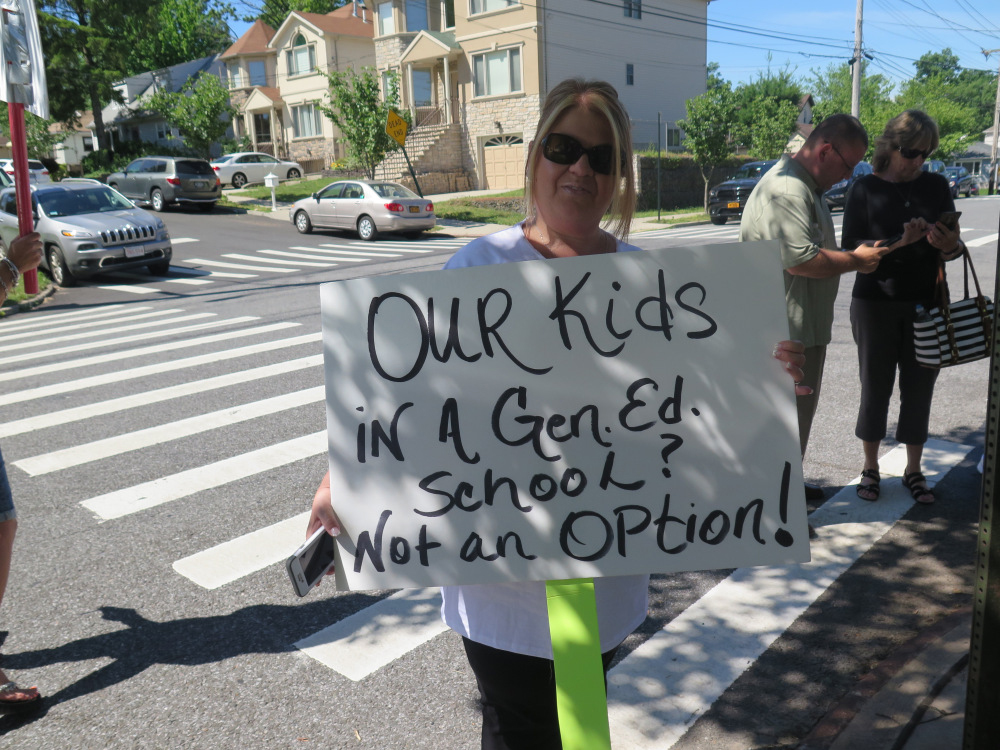 OUR Kids
iN A Gen. Ed.
School?
Not an OPtion!
DEAD
END